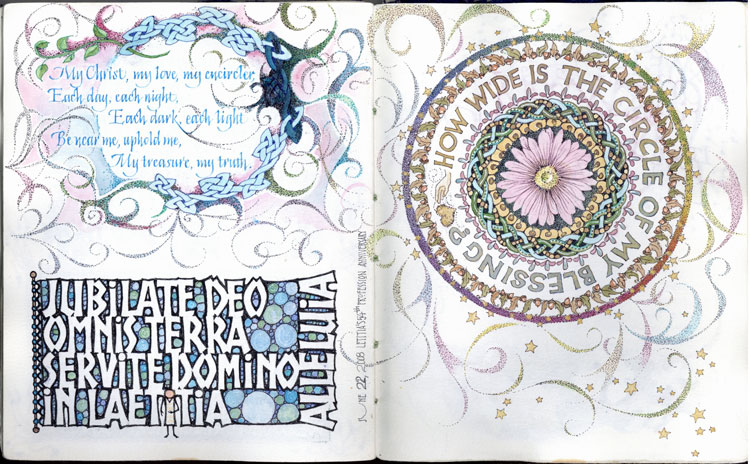 My Christ, my love, my encircler
Each day, each night,
Each dark, each light
Be near me, uphold me,
My treasure, my truth.
JUBILATE DEO
OMNIS TERRA
SERVITE DOMINO
IN LAETITIA
ALLELUIA
JUNE 22, 2008 LETITIA'S PROFESSION ANNIVERSARY
HOW WIDE IS THE CIRCLE OF MY BLESSING?